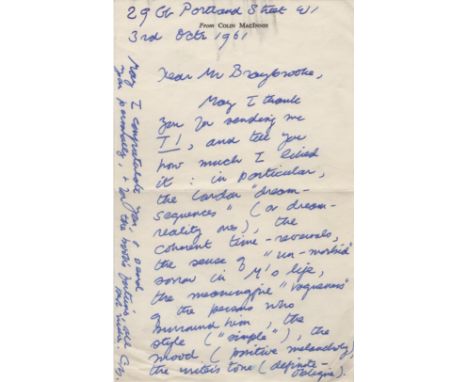 29 Gt Portland Street W1
From Colin MacInnes
3rd Octr 1961
Dear Mr Braybrooke,
May I thank
you for sending me
and tell you
how much I liked
it : in particular,
the London "dream-
sequences" (or dream-
reality ones), the
coherent time-reversals,
the sense of "un-morbid"
sorrow in M's life,
the meaningful "vagueness"
of the persons who
surround him, the
style ("simple"), the
mood (positive melancholy),
the writer's tone (definite-
May I congratulate you, &
you personally, & for the book's